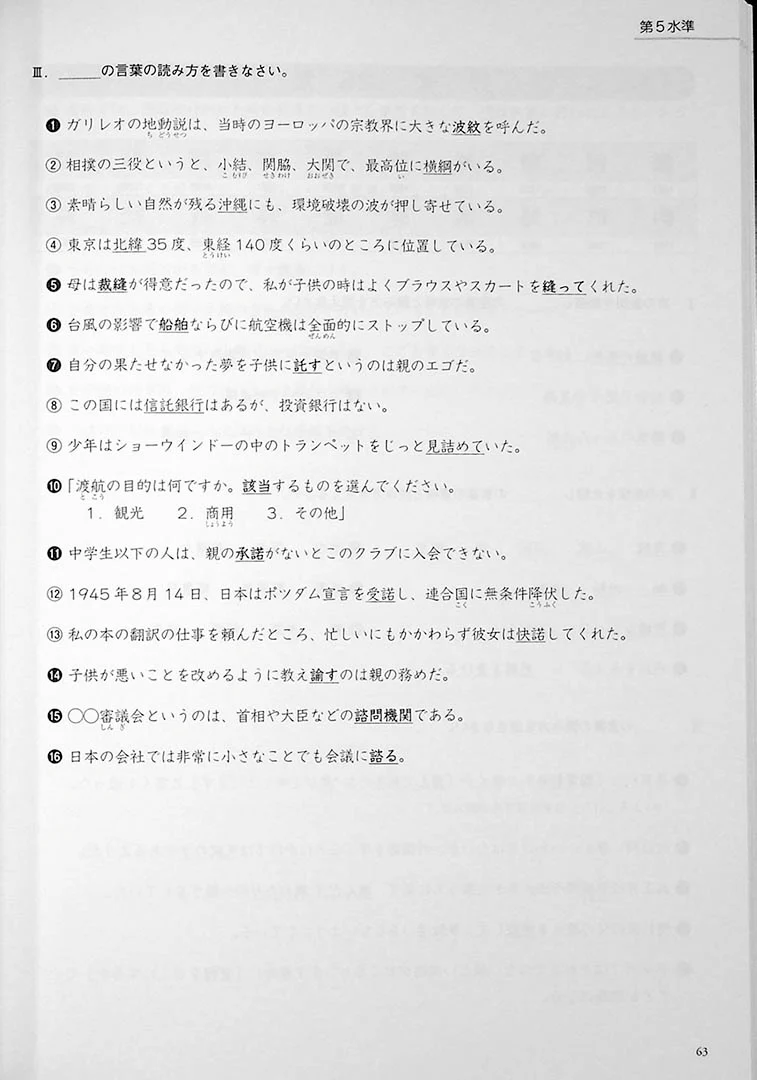 第5水準
Ⅲ. ______の言葉の読み方を書きなさい。
❶ ガリレオの地動説は、当時のヨーロッパの宗教界に大きな波紋を呼んだ。
ち どうせつ
② 相撲の三役というと、小結、関脇、大関で、最高位に横綱がいる。
こ むすび せきわけ おおぜき い
③ 素晴らしい自然が残る沖縄にも、環境破壊の波が押し寄せている。
④ 東京は北緯35度、東経140度くらいのところに位置している。
とうけい
❺ 母は裁縫が得意だったので、私が子供の時はよくブラウスやスカートを縫ってくれた。
❻ 台風の影響で船舶ならびに航空機は全面的にストップしている。
ぜんめん
❼ 自分の果たせなかった夢を子供に託すというのは親のエゴだ。
⑧ この国には信託銀行はあるが、投資銀行はない。
⑨ 少年はショーウインドーの中のトランペットをじっと見詰めていた。
❿ 「渡航の目的は何ですか。該当するものを選んでください。
と こう
1. 観光 2. 商用 3. その他」
しょうよう
⓫ 中学生以下の人は、親の承諾がないとこのクラブに入会できない。
⑫ 1945年8月14日、日本はポツダム宣言を受諾し、連合国に無条件降伏した。
こく こうふく
⑬ 私の本の翻訳の仕事を頼んだところ、忙しいにもかかわらず彼女は快諾してくれた。
⓮ 子供が悪いことを改めるように教え諭すのは親の務めだ。
⓯ ○○審議会というのは、首相や大臣などの諮問機関である。
しん ぎ
⓰ 日本の会社では非常に小さなことでも会議に諮る。
63